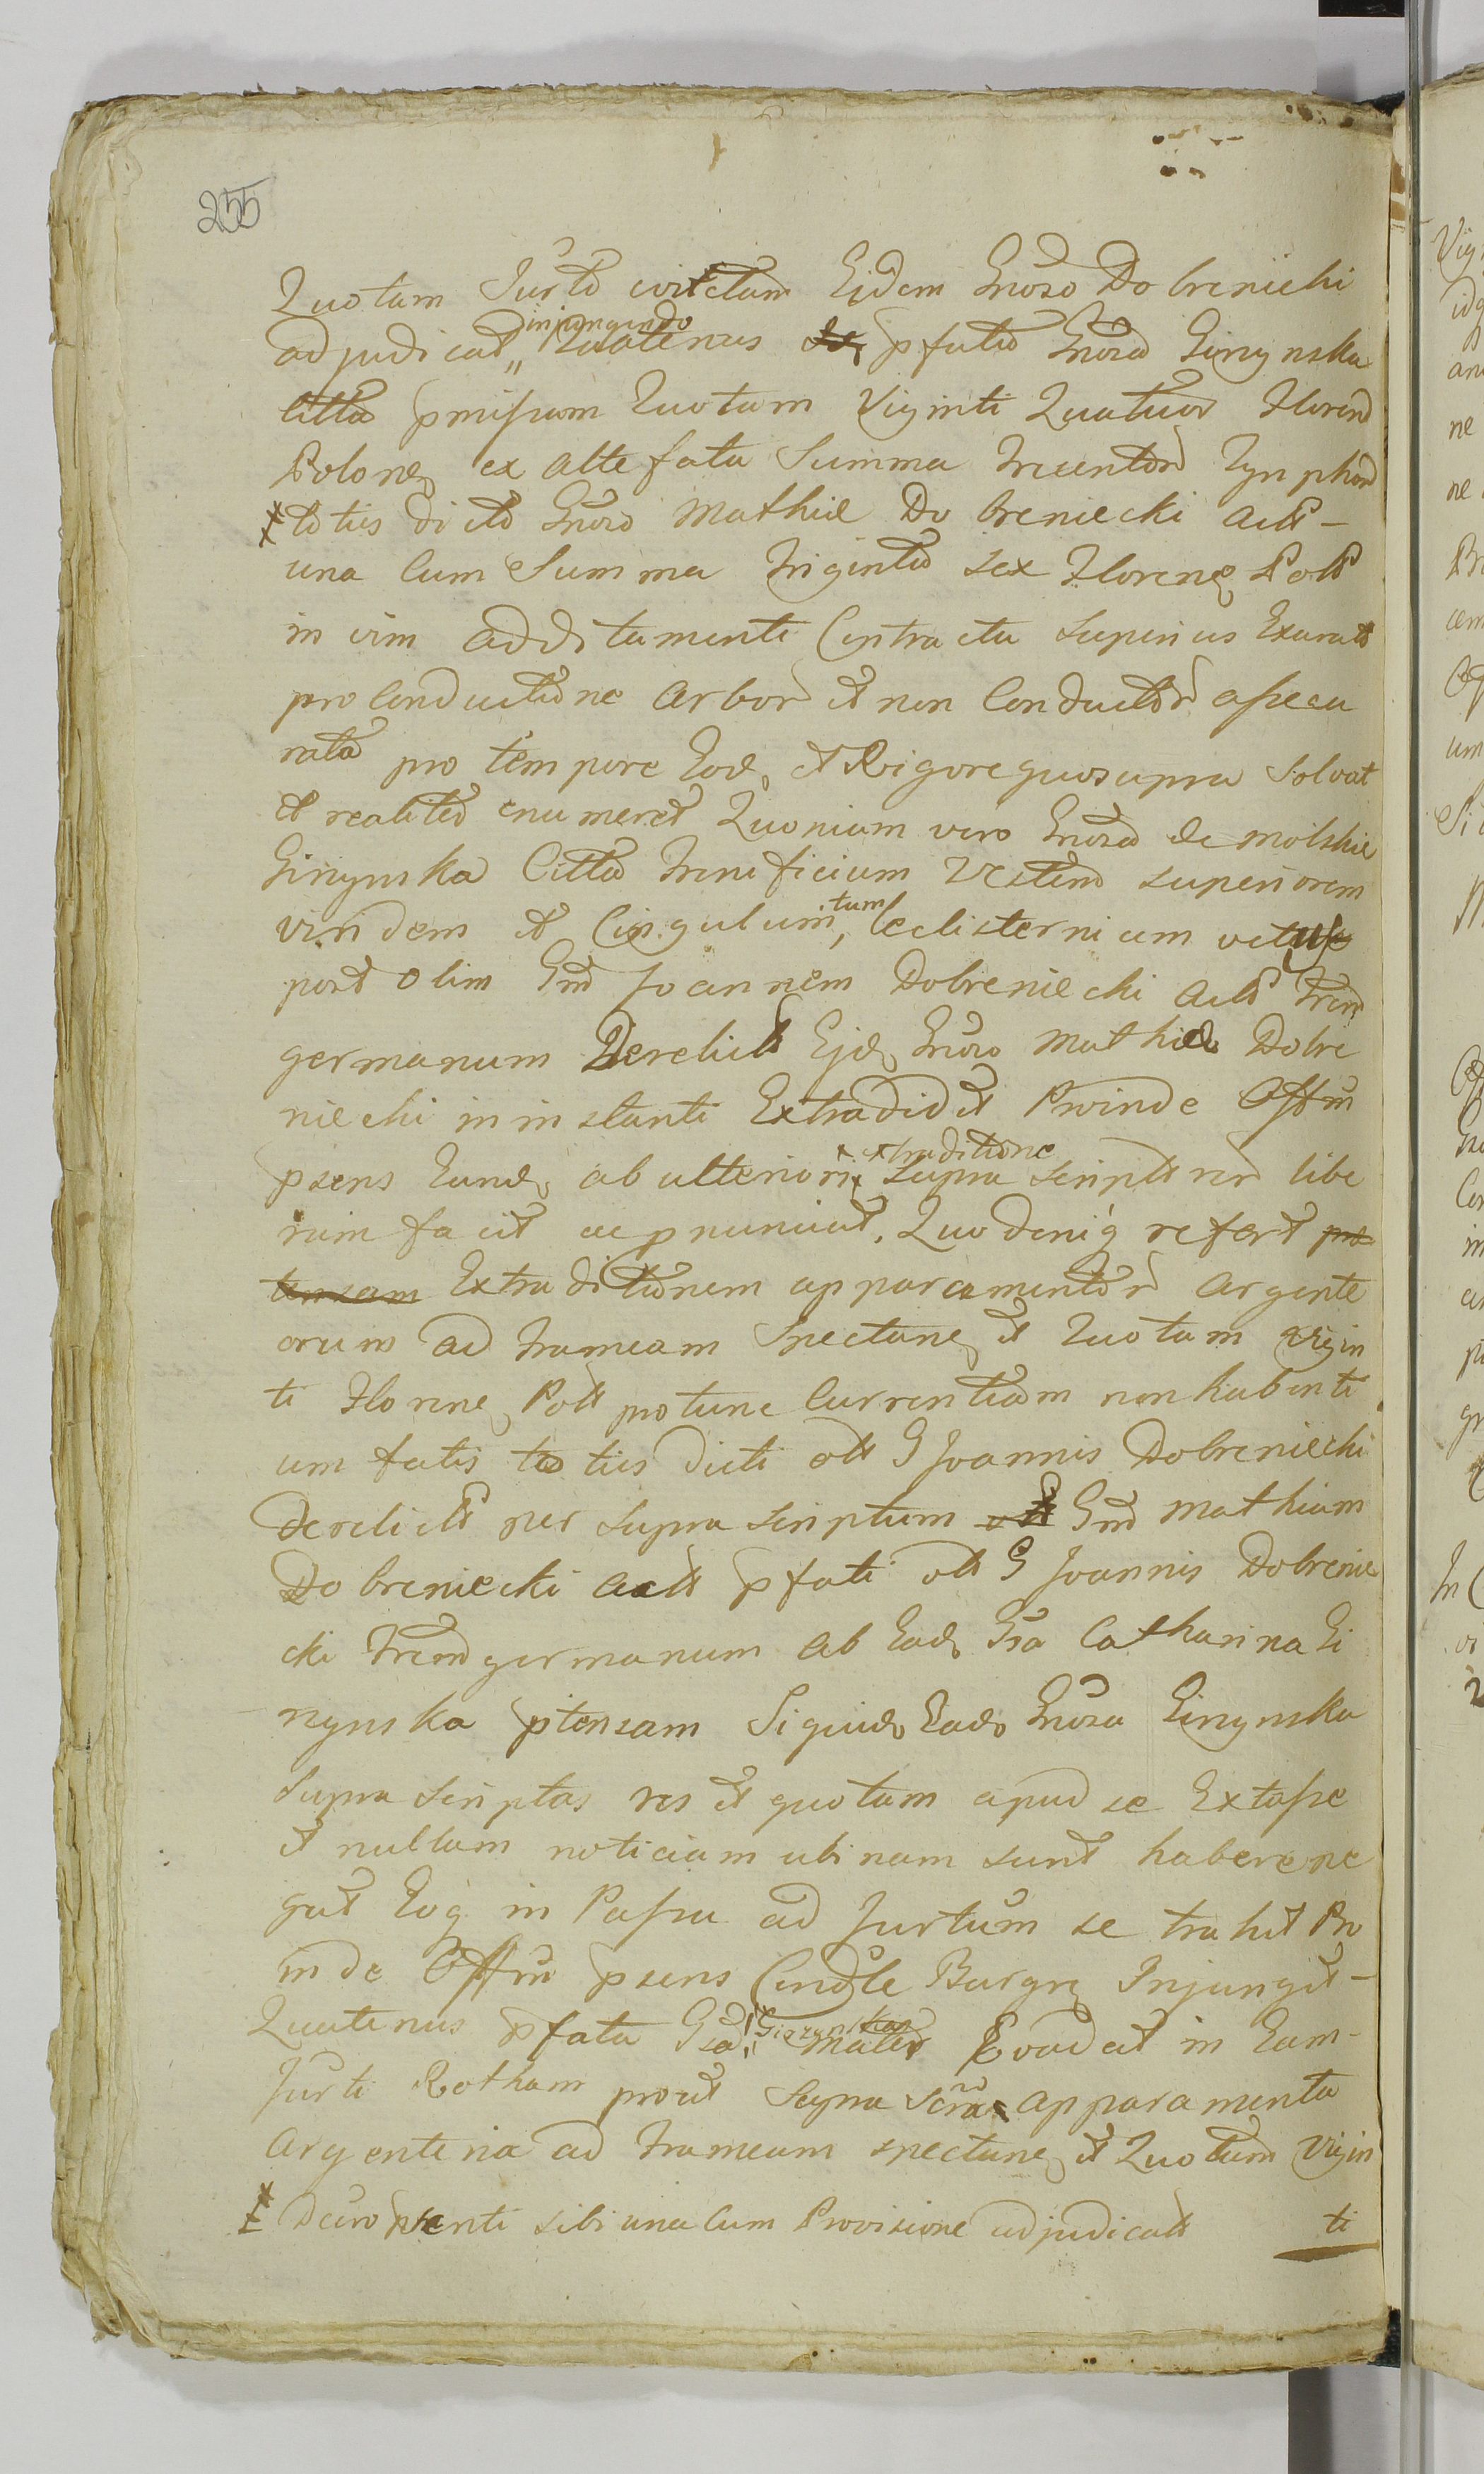 255
Quotam Jurto evictam Ejdem Gnoso Dobreniecki
adjudicat injungendo Quatenus pfata Gnosa Ginynska
Citta pmissam Quotam Viginti Quatuor Floren
Polone ex alte fata Summa Trecentor Tynphor
toties dicto Gnoso Mathie Dobreniecki Actt -
una Cum Summa Triginta sex Florene Poll
in vim additamenti Contractu superius Exaratt
pro Conductione arbor et non Conductor assecu
rata pro tempore Eod et Rigore quo supra solvat
et realiter enumeret Quoniam vero Gnosa de Molskie
Ginynska Citta Trenificium Vestem superiorem
viridem et Cingulum, tum lectisternium
post olim Gnd Joannem Dobreniecki Actt Frem
germanum Derelictt Ejd Gnoso Mathie Dobre
niecki in instanti Extradidit Proinde Offm
psens Eand ab ulteriori extraditione supra scriptt rer libe
ram facit ac pnunciat. Quod eniq refert pre
tensam Extraditionem apparamentor argente
orum ad frameam Spectane et Quotam vigin
ti Florene Poll pro tunc Currentiam non habenti
um fatis toties dicti olt G Joannis Dobreniecki
derelictt per supra scriptum Gnd Mathiam
Dobreniecki Actt pfati olt G Joannis Dobrenie
cki Frem germanum ab Ead Gsa Catharina Gi
nynska ptensam Siquid Ead Gnosa Ginynska
supra scriptas res et quotam apud se Extasse
et nullam noticiam ubinam sunt habere ne
gat Eoq in Passu ad Jurtum se trahit Pro
inde Offm psens Cendle Burgre Injungit -
Quatenus pfata Gsa Ginynska Mater Evadat in Eam -
Jurti Rotham prout supra scra apparamenta
argenteria ad frameam spectane et Quotam Vigin
ti
Decropsenti sibi una Cum Provisione adjudicatt